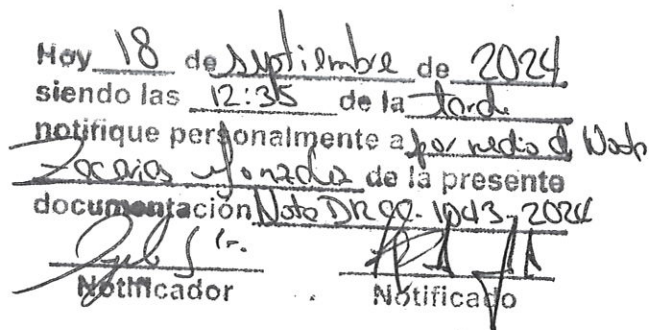 Hoy 18 de septiembre de 2024
siendo las 12:35 de la tarde
notifique personalmente a por medio d
Zacarias de la presente
documentación Nota DRCC-1043-2024
Notificador Notificado